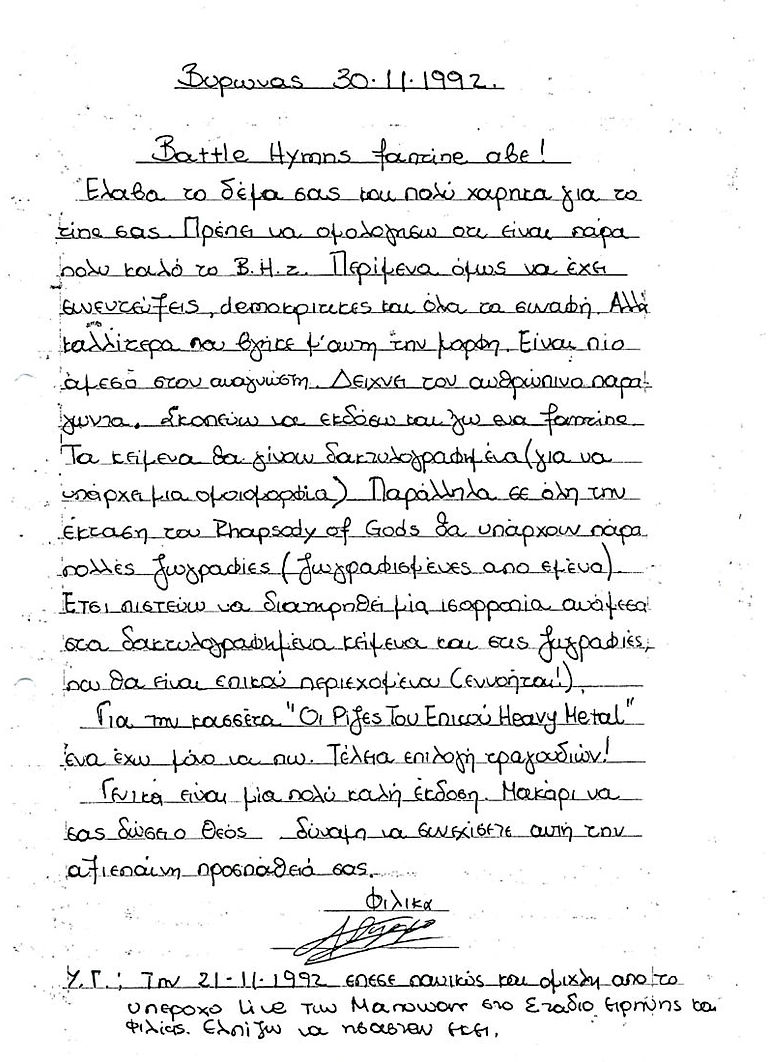 Βυρωνας 30.11.1992.
Battle Hymns fanzine αβε!
Έλαβα το δέμα σας και πολύ χαρηκα για το
zine σας. Πρέπει να ομολογησω οτι είναι πάρα
πολυ καλό το B.H.z. Περίμενα όμως να έχει
συνεντεύξεις, demoκριτικες και όλα τα συναφή. Αλλά
καλλίτερα που βγήκε μ'αυτη την μορφη. Είναι πιο
άμεσο στον αναγνώστη. Δειχνει τον ανθρώπινο παρά-
γωντα. Σκοπεύω να εκδόσω και γω ενα fanzine.
Τα κείμενα θα γίνουν δακτυλογραφημένα (για να
υπάρχει μια ομοιομορφία) Παράλληλα σε όλη την
έκταση του Rhapsody of Gods θα υπάρχουν πάρα
πολλές ζωγραφιες (ζωγραφισμένες απο εμένα).
Ετσι πιστεύω να διατηρηθεί μία ισορροπία ανάμεσα
στα δακτυλογραφημένα κείμενα και στις ζωγραφιές,
που θα είναι επικού περιεχομένου (εννοήται!).
Για την κασσέτα "Οι Ρίζες Του Επικού Heavy Metal"
ένα έχω μόνο να πω. Τέλεια επιλογή τραγουδιών!
Γενικά είναι μία πολύ καλή έκδοση. Μακάρι να
σας δώσει ο Θεός δύναμη να συνεχίσετε αυτή την
αξιεπαίνη προσπάθειά σας.
Φιλικα
Υ.Γ.: Την 21-11-1992 επεσε πανικός και ομιχλη απο το
υπεροχο live των Manowar στο Σταδιο ειρηνης και
φιλιας. Ελπίζω να ησασταν εκει.